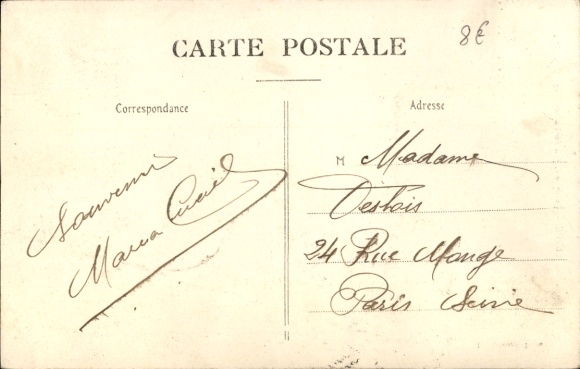 8€
CARTE POSTALE
Correspondance
Adresse
Souvenir
Maria
M Madame
Deslois
24 Rue Monge
Paris Seine